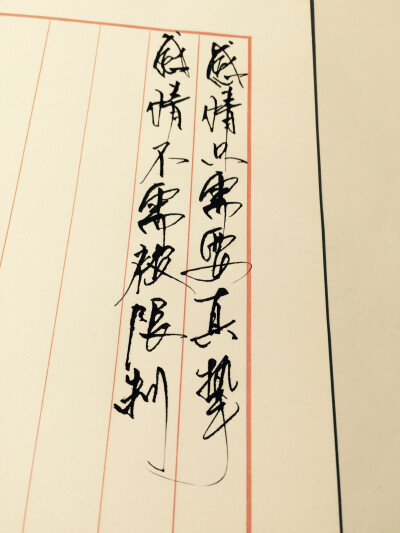 感情只需要真挚
感情不需被限制